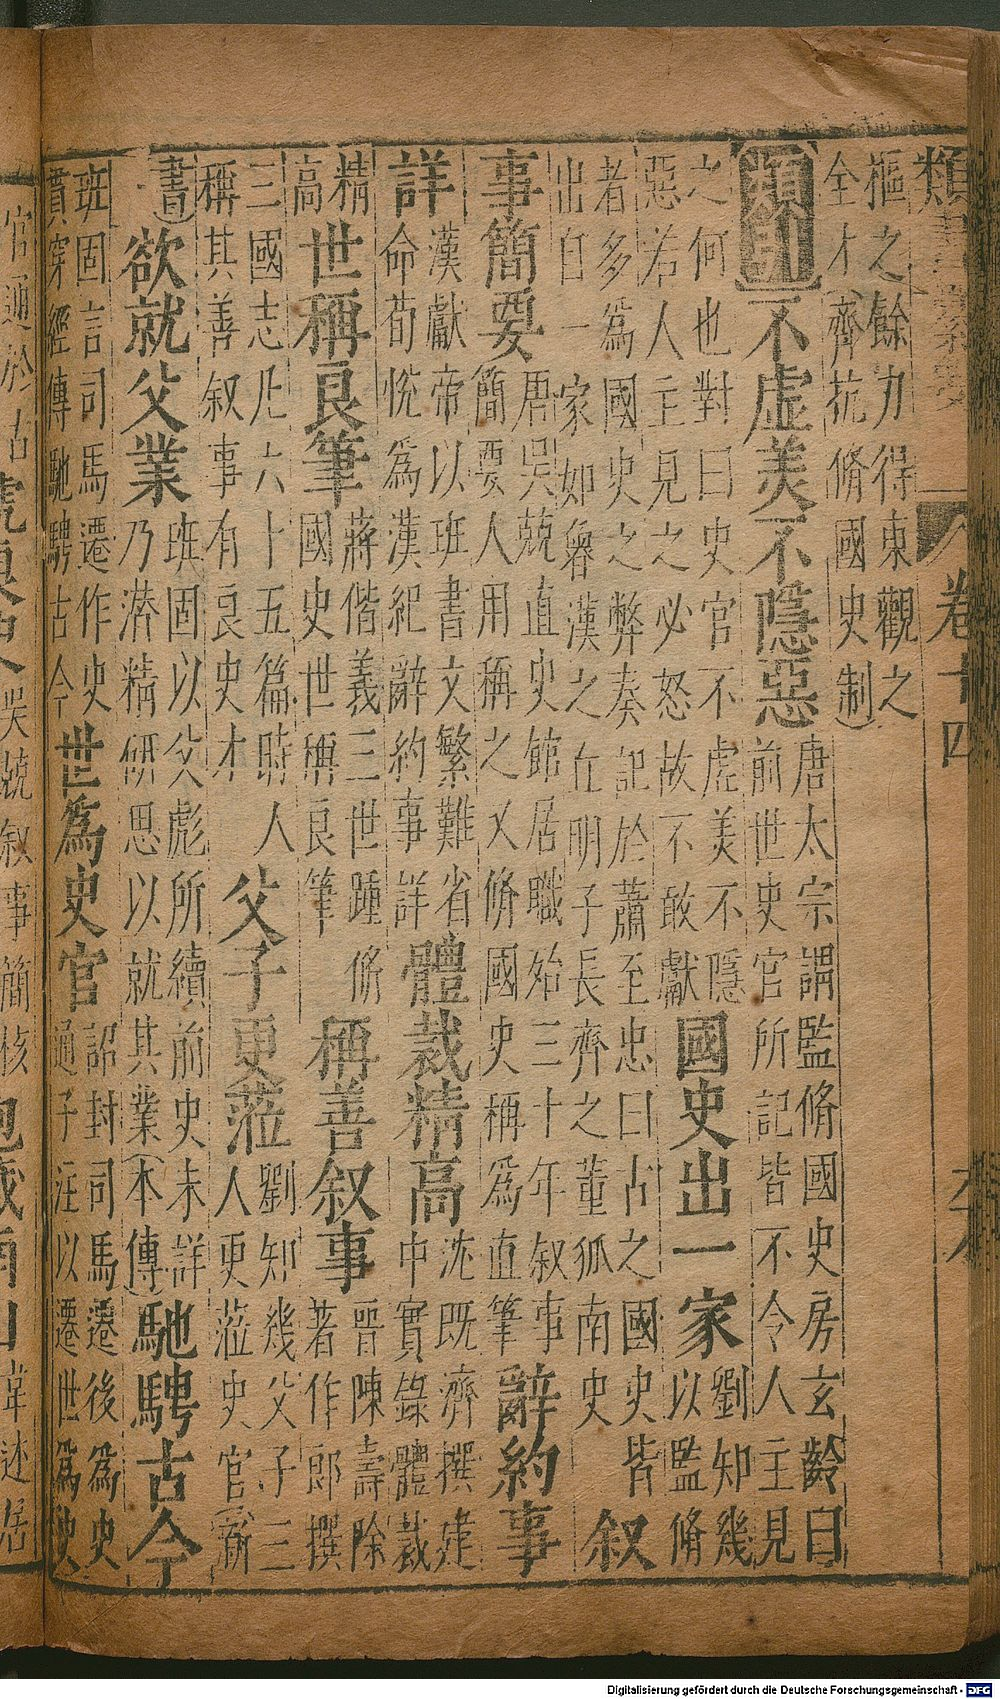 類
卷十四
樞之餘力得東觀之
全才齊抗脩國史制
不虛美不隱惡
唐太宗謂監脩國史房玄齡曰
前世史官所記皆不令人主見
之何也對曰史官不虛美不隱
惡若人主見之必怒故不敢獻
國史出一家
劉知幾
以監脩
者多為國史之弊奏記於蕭至忠曰古之國史皆
出自一家如魯漢之丘明子長齊之董狐南史
叙事簡要
唐吳兢直史館居職殆三十年叙事
簡要人用稱之又脩國史稱為直筆
辭約事詳
漢獻帝以班書文繁難省
命荀悅為漢紀辭約事詳
體裁精高
沈既濟撰建
中實錄體裁
精
高
世稱良筆
蔣偕義三世踵脩
國史世稱良筆
稱善叙事
晉陳壽除
著作郎撰
三國志凡六十五篇時人
稱其善叙事有良史才
父子更蒞
劉知幾父子三
人更蒞史官新
書
欲就父業
班固以父彪所續前史未詳
乃潛精研思以就其業本傳
馳騁古今
班固言司馬遷作史
貫穿經傳馳騁古今
世為史官
詔封司馬遷後為史
通子汪以遷世為史
官通於古
吳兢叙事簡核
韋述居
Digitalisierung gefördert durch die Deutsche Forschungsgemeinschaft - DFG